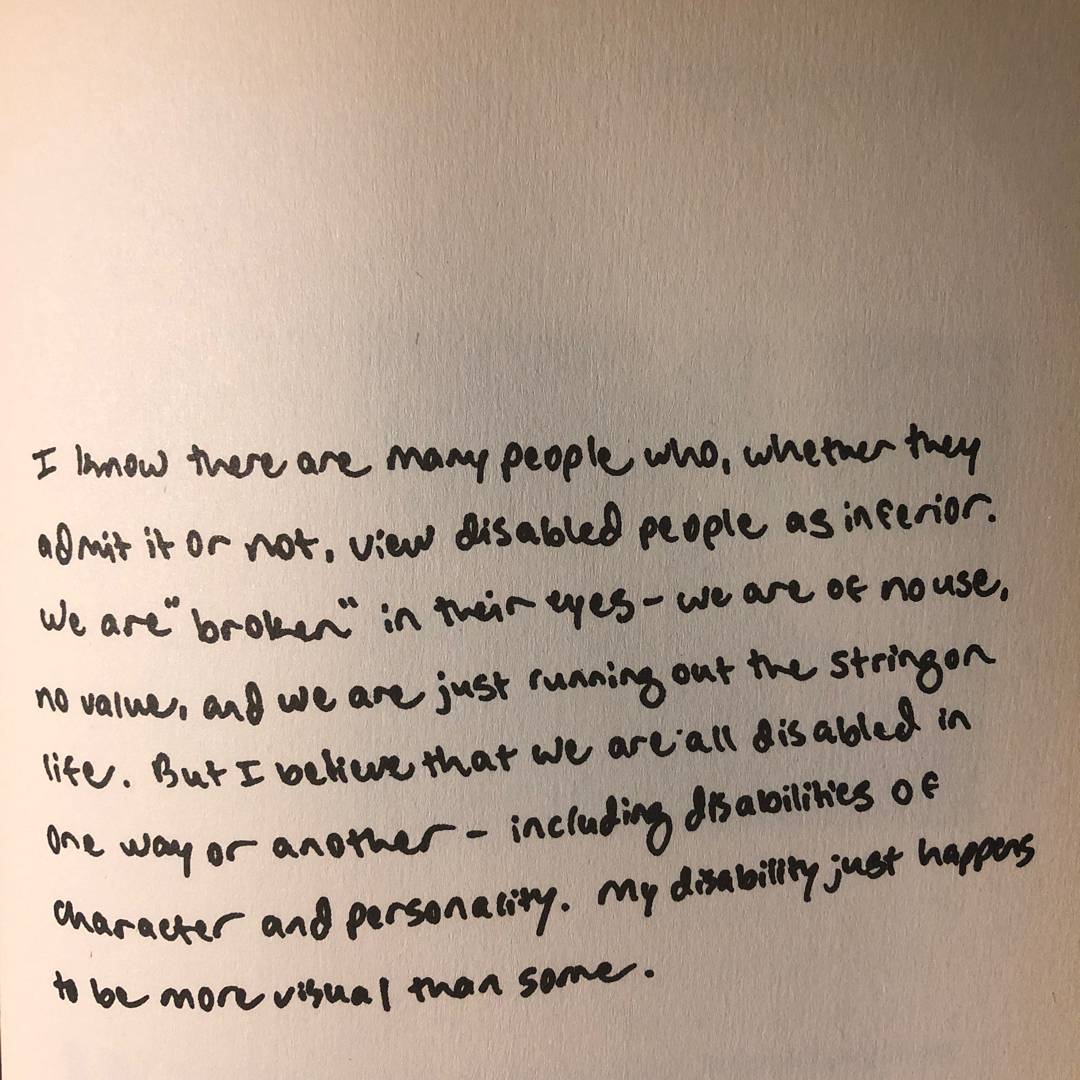 I know there are many people who, whether they
admit it or not, view disabled people as inferior.
We are "broken" in their eyes - we are of no use,
no value, and we are just running out the string on
life. But I believe that we are all disabled in
one way or another - including disabilities of
character and personality. My disability just happens
to be more visual than some.